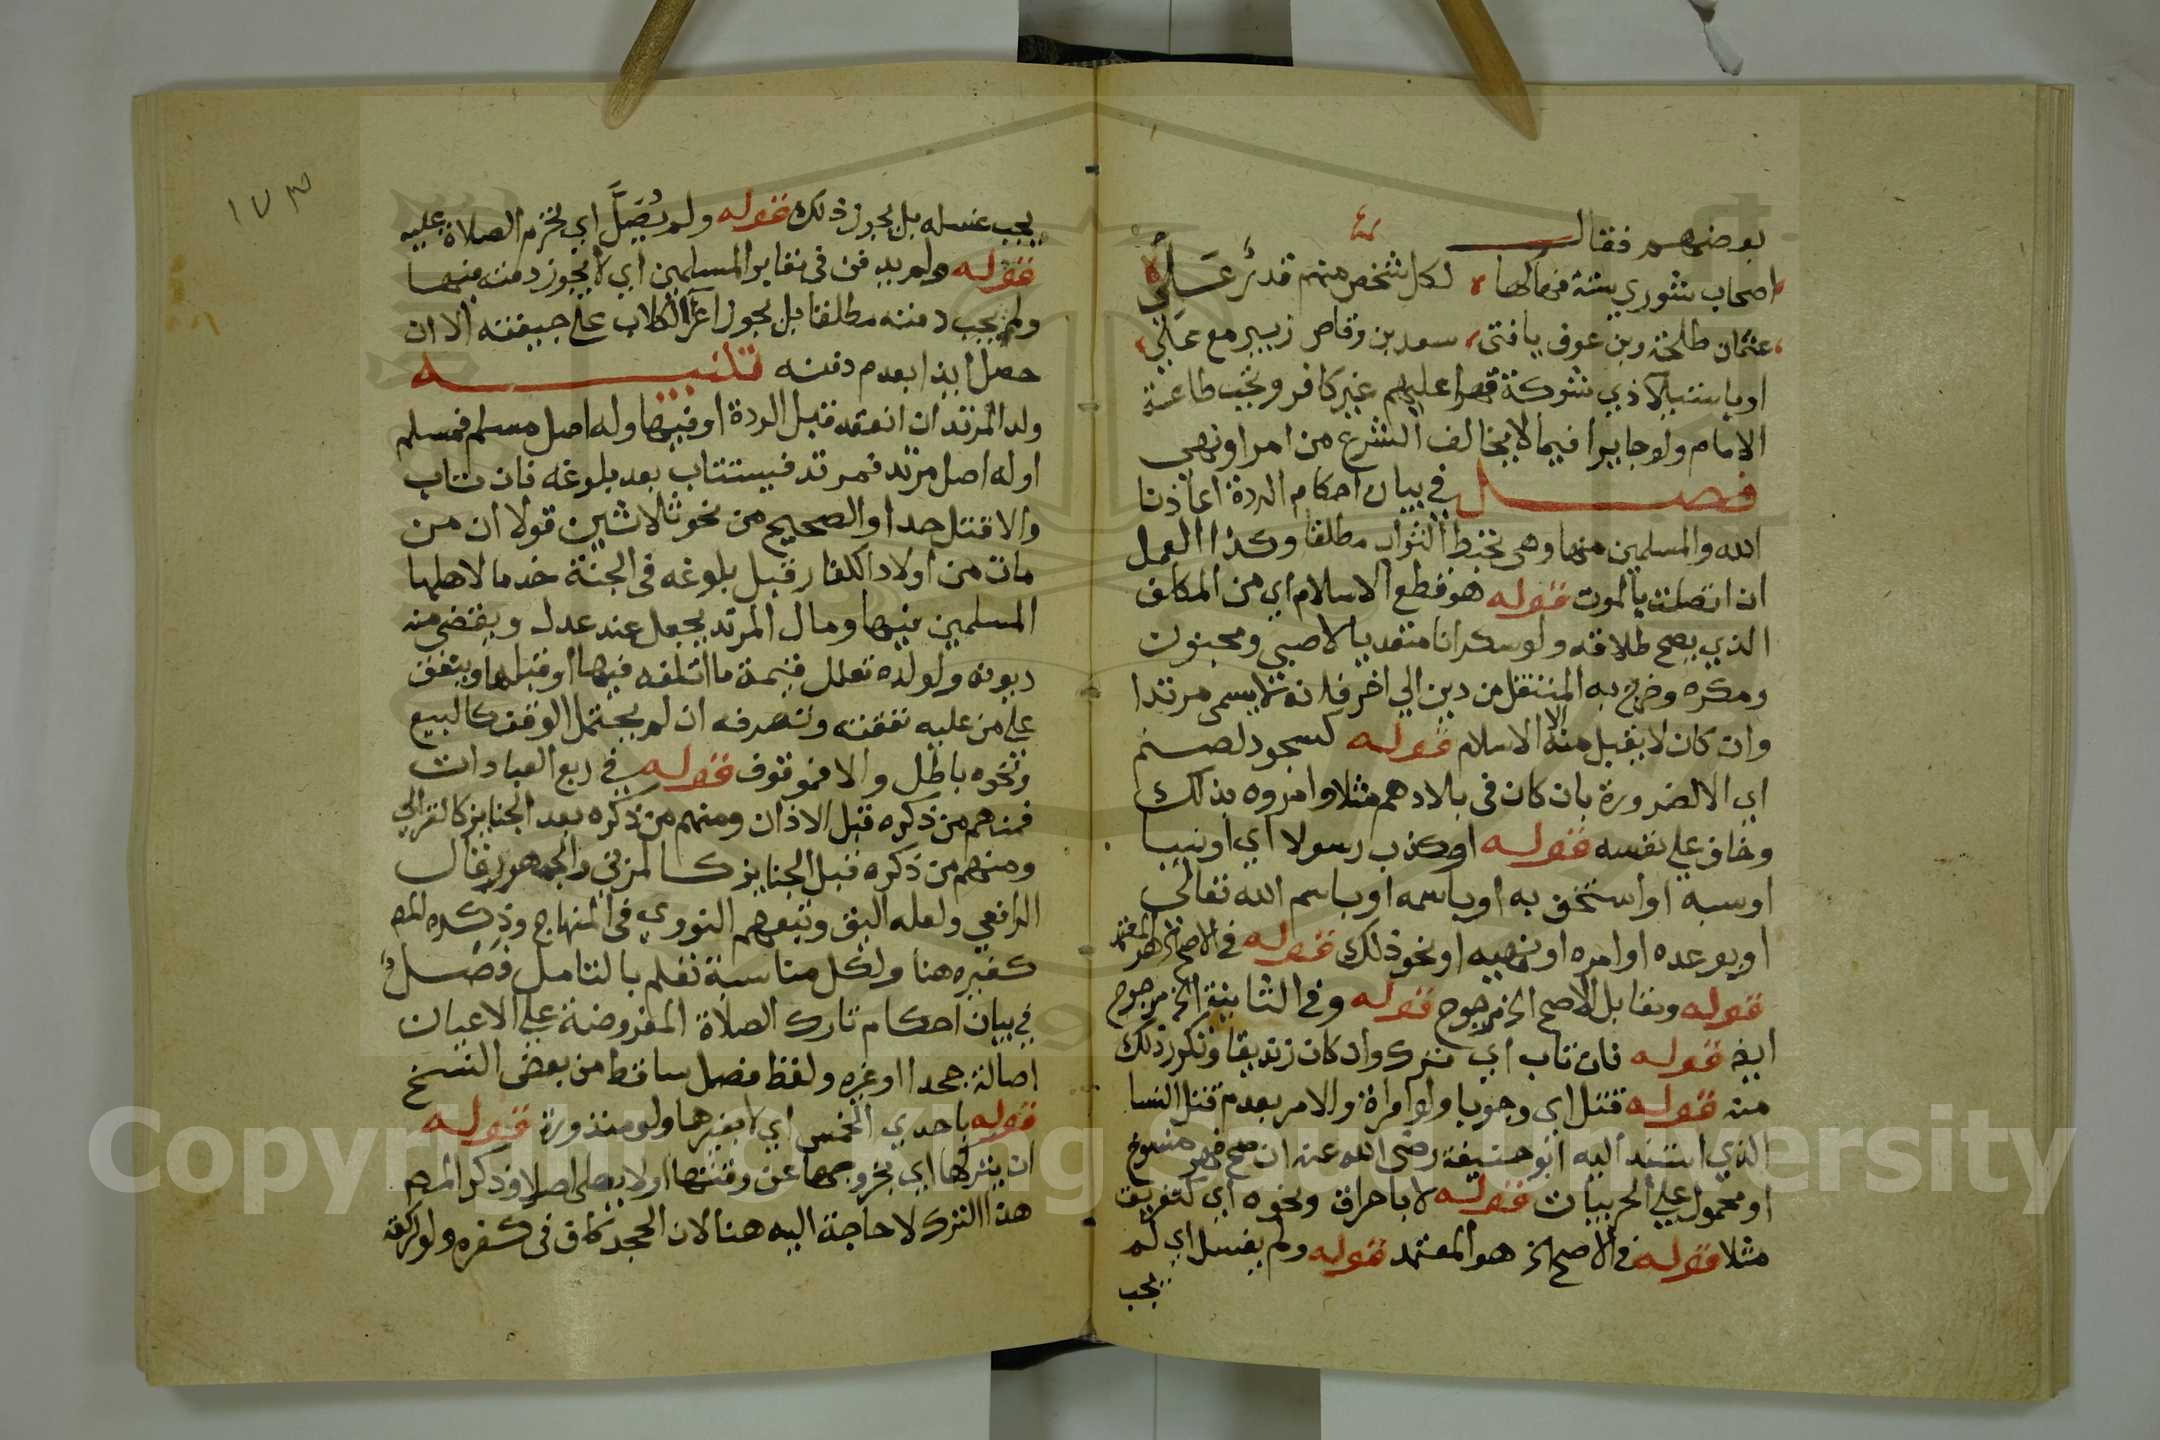 بعضهم فقال
اصحاب شوري ستة فهاكها لكل شخص منهم قدر علي
عثمان طلحة وبن عوف يا فتى سعد بن وقاص زبير مع علي
او باستيلا ذي شوكة قهرا عليهم غير كافر وتجب طاعة
الامام ولو جايرا فيما لا يخالف الشرع من امر او نهي
فصل في بيان احكام الردة اعاذنا
الله والمسلمين منها وهي تحبط الثواب مطلقا وكذا العمل
ان اتصلت بالموت قوله هو قطع الاسلام اي من المكلف
الذي يصح طلاقه ولو سكرانا متعديا لا صبي ومجنون
ومكره وخرج به المنتقل من دين الي اخر فانه لا يسمى مرتدا
وان كان لا يقبل منه الا الاسلام قوله كسجود لصنم
اي الا لضرورة بان كان في بلادهم مثلا وامروه بذلك
وخاف علي نفسه قوله او كذب رسولا اي او نبيا
او سبه او استخف به او باسمه او باسم الله تعالي
او بوعده او امره او نهيه او نحو ذلك قوله في الاصح الخ هو المعتمد
قوله ومقابل الاصح الخ مرجوح قوله وفي الثانية الخ مرجوح
ايض قوله فان تاب اي ترك وان كان زنديقا وتكرر ذلك
منه قوله قتل اي وجوبا ولو امراة والامر بعدم قتل النسا
الذي استند اليه ابو حنيفة رضي الله عنه ان صح فهو منسوخ
او محمول علي الحربيات قوله لا باحراق ونحوه اي كتغريق
مثلا قوله في الاصح الخ هو المعتمد قوله ولم يغسل اي لم
يجب
١٧٣
يجب غسله بل يجوز ذلك قوله ولم يُصَلَّ اي تحرم الصلاة عليه
قوله ولم يدفن في مقابر المسلمين اي لا يجوز دفنه فيها
ولم يجب دفنه مطلقا بل يجوز اغرا الكلاب علي جيفته الا ان
حصل ايذا بعدم دفنه تنبيه
ولد المرتد ان انعقد قبل الردة او فيها وله اصل مسلم فمسلم
او له اصل مرتد فمرتد فيستتاب بعد بلوغه فان تاب
والا قتل حدا والصحيح من نحو ثلاثين قولا ان من
مات من اولاد الكفار قبل بلوغه في الجنة خدما لاهلها
المسلمين فيها ومال المرتد يجعل عند عدل ويقضي منه
ديونه ولو لده تعلل قيمة ما اتلفه فيها او قبلها وينفق
علي من عليه نفقته وتصرفه ان لم يحتمل الوقف كالبيع
ونحوه باطل والا فموقوف قوله في ربع العبادات
فمنهم من ذكره قبل الاذان ومنهم من ذكره بعد الجنايز كالغزالي
ومنهم من ذكره قبل الجنايز كالمزني والجمهور قال
الرافعي ولعله اليق وتبعهم النووي في المنهاج وذكره المص
كغيره هنا ولكل مناسبة تعلم بالتامل فصل
في بيان احكام تارك الصلاة المفروضة علي الاعيان
اصالة جحدا او غيره ولفظ فصل ساقط من بعض النسخ
قوله باحدي الخمس اي لا بغيرها ولو منذورة قوله
ان يتركها اي بخروجها عن وقتها او لا يصلي اصلا وذكر المص
هذا الترك لا حاجة اليه هنا لان الجحد كاف في كفره ولو لركعة